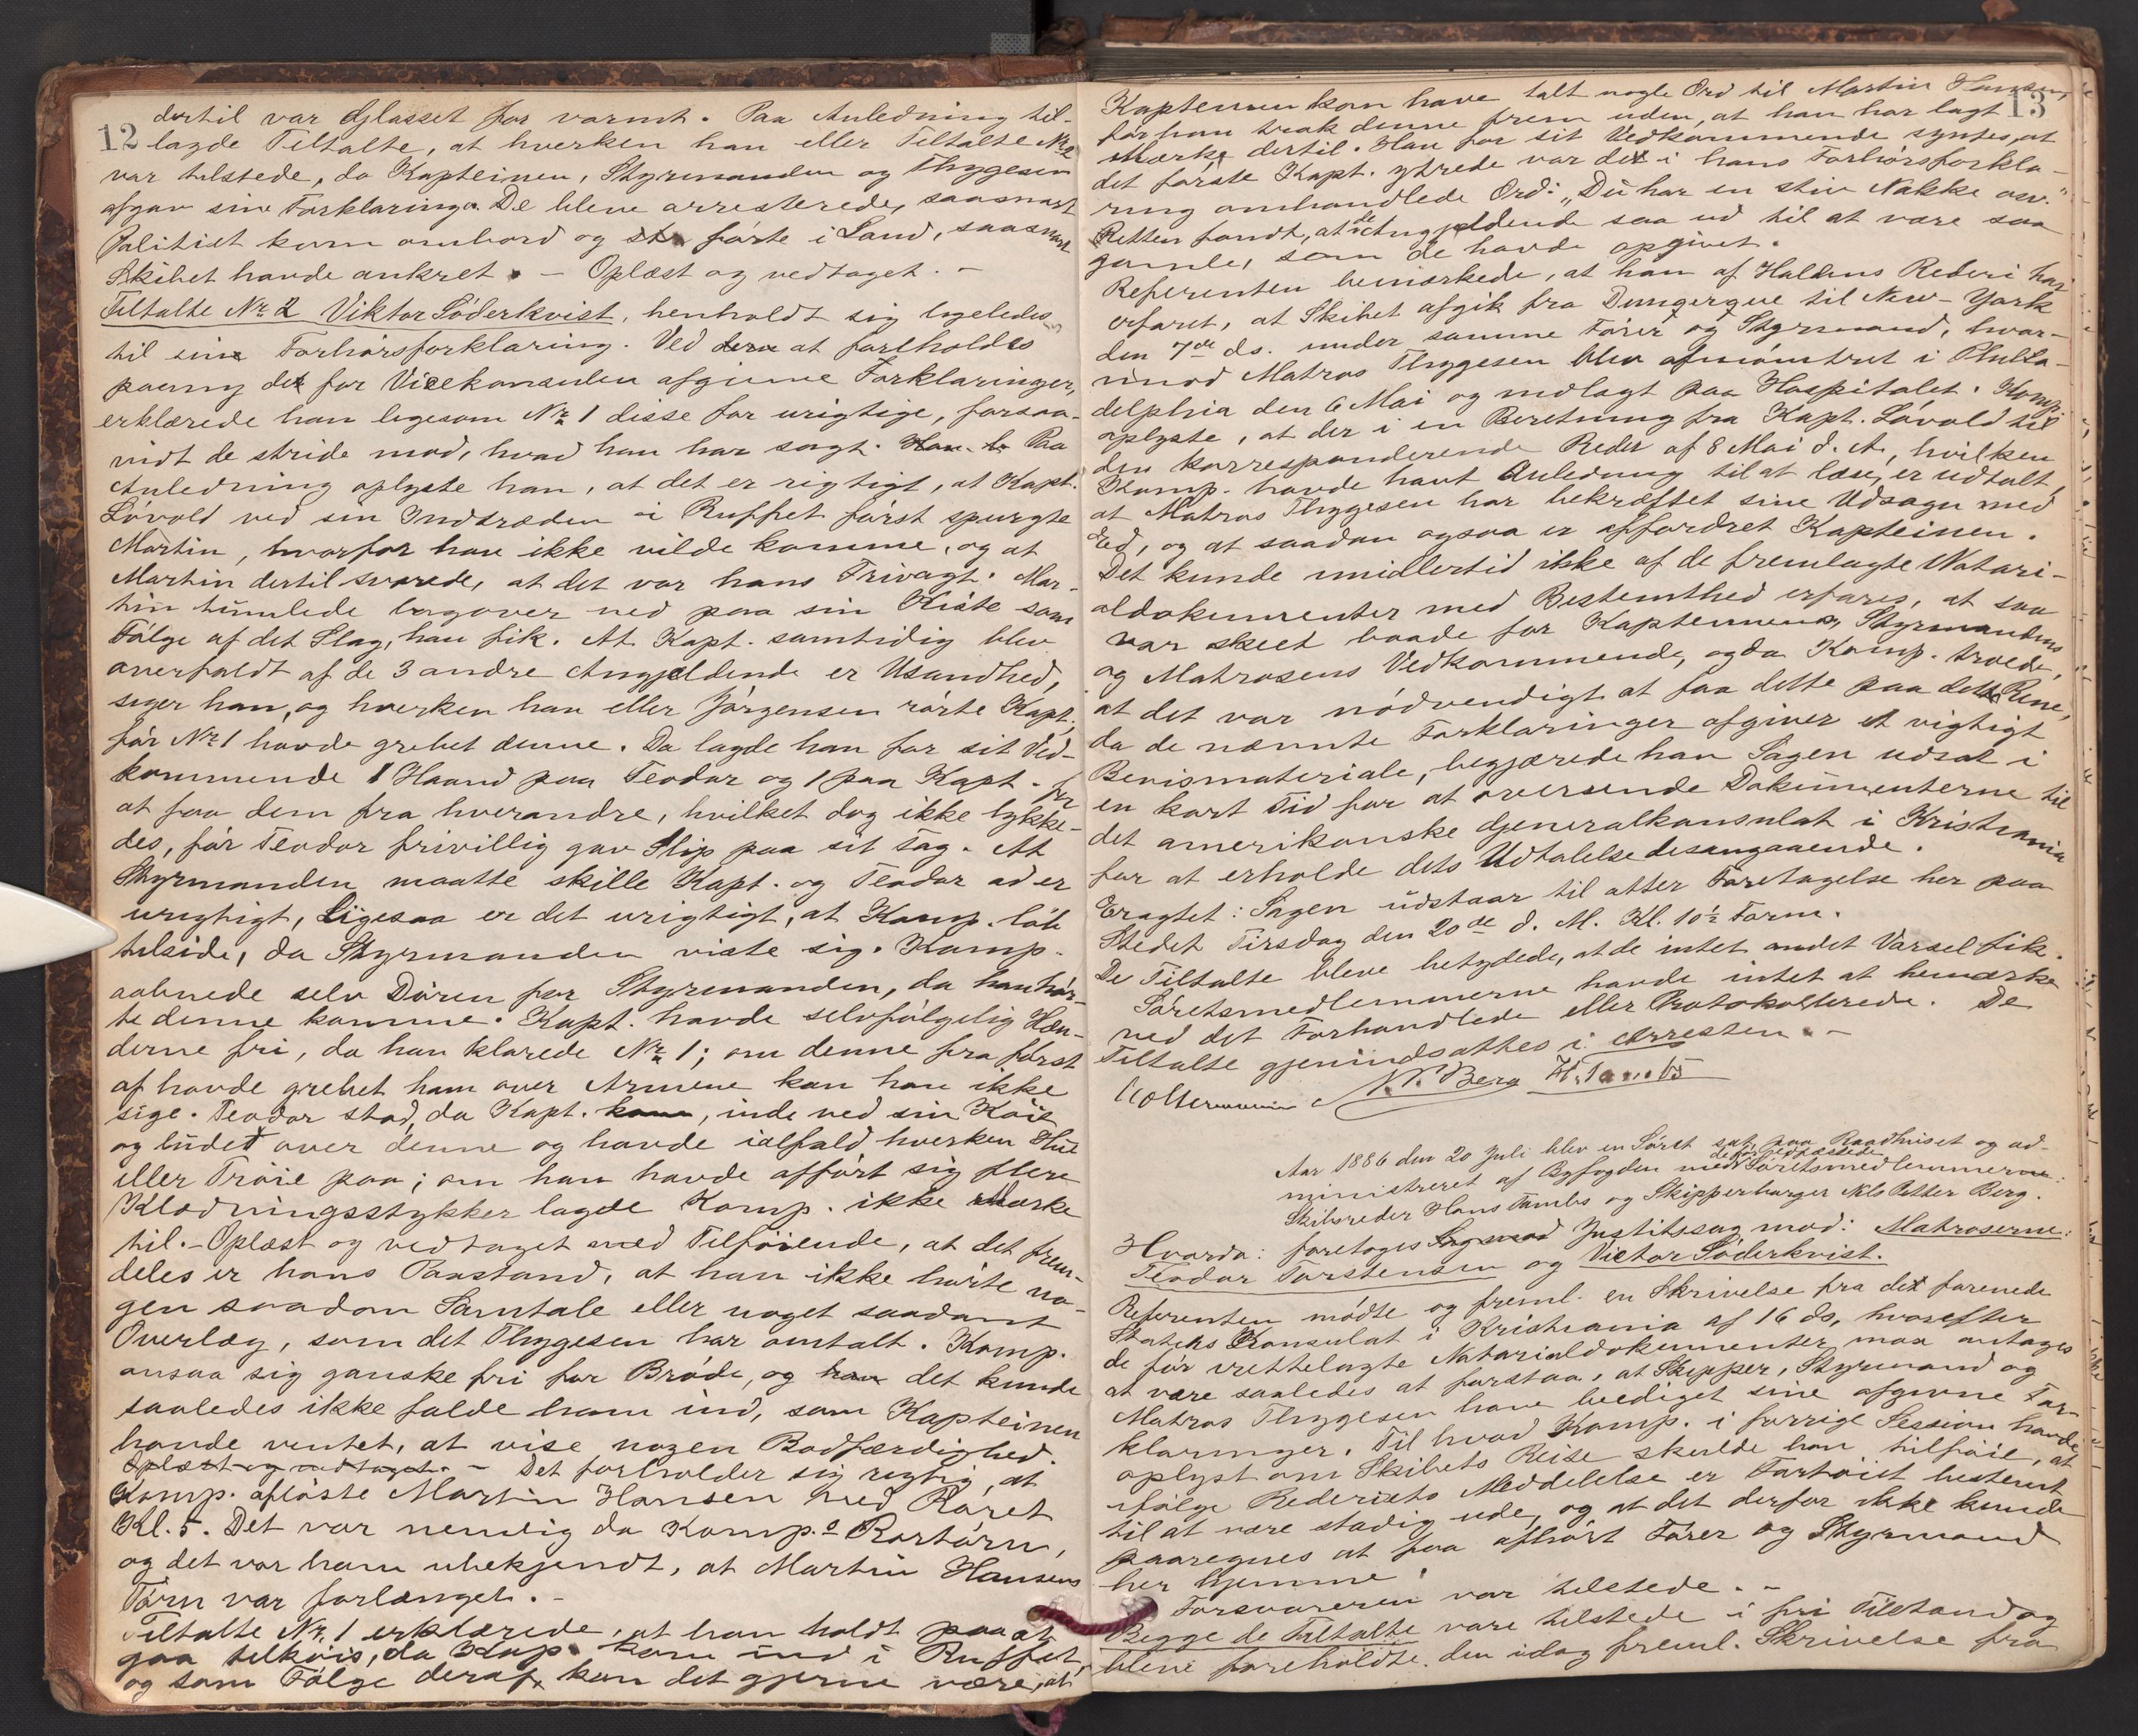 12
dertil var Glasset for varmt. Paa Anledning til-
lagde Tiltalte, at hverken han eller Tiltalte No 2
var tilstede, da Kapteinen, Styrmanden og Thygesen
afgav sine Forklaringer. De bleve arresterede, saasnart
Politiet kom ombord og førte i Land, saasnart
Skibet havde ankret. – Oplæst og vedtaget. –
Tiltalte Nr. 2 Viktor Söderkvist, henholdt sig ligeledes
til sin Forhørsforklaring. Ved at foreholdes
paany de for Vicekonsulen afgivne Forklaringer,
erklærede han ligesom Nr. 1 disse for urigtige, forsaa-
vidt de stride mod, hvad han har sagt. Paa
Anledning oplyste han, at det er rigtigt, at Kapt.
Løvold ved sin Indtræden i Ruffet først spurgte
Martin, hvorfor han ikke vilde komme, og at
Martin dertil svarede, at det var hans Frivagt. Mar-
tin tumlede bagover ned paa sin Kiste som
Følge af det Slag, han fik. At Kapt. samtidig blev
overfaldt af de 3 andre Angjeldende er Usandhed,
siger han, og hverken han eller Jørgensen rørte Kapt.
før Nr. 1 havde grebet denne. Da lagde han for sit Ved-
kommende 1 Haand paa Teodor og 1 paa Kapt. for
at faa dem fra hverandre, hvilket dog ikke lykke-
des, før Teodor frivillig gav Slip paa sit Tag. At
Styrmanden maatte skille Kapt. og Teodor ad er
urigtigt, Ligesaa er det urigtigt, at Komp. løb
tilside, da Styrmanden viste sig. Komp.
aabnede selv Døren for Styrmanden, da han hør-
te denne komme. Kapt. havde selvfølgelig Hæn-
derne fri, da han klarede Nr. 1; om denne fra først
af havde grebet ham over Armene kan han ikke
sige. Teodor stod, da Kapt. kom, inde ved sin Køie
og ludet over denne og havde ialfald hverken Hue
eller Trøie paa; om han havde afført sig flere
Klædningsstykker lagde Komp. ikke Mærke
til. – Oplæst og vedtaget med Tilføiende, at det frem-
deles er hans Paastand, at han ikke hørte no-
gen saadan Samtale eller noget saadant
Overlæg, som det Thygesen har omtalt. Komp.
ansaa sig ganske fri for Brøde, og det kunde
saaledes ikke falde ham ind, som Kapteinen
havde ventet, at vise nogen Bodfærdighed.
Oplæst og vedtaget. – Det forholder sig rigtig, at
Komp. afløste Martin Hansen ved Roret
Kl. 5. Det var nemlig da Komp.s Rortørn,
og det var ham ubekjendt, at Martin Hansens
Tørn var forlænget. –
Tiltalte Nr. 1 erklærede, at han holdt paa at
gaa tilkøis, da Kap. kom ind i Ruffet,
og som Følge deraf kan det gjerne være, at
13
Kapteinen kan have talt nogle Ord til Martin Hansen,
før han trak denne frem uden, at han har lagt
Mærke dertil. Han for sit Vedkommende syntes, at
det første Kapt. ytrede var de i hans Forhørsforkla-
ring omhandlede Ord: "Du har en stiv Nakke osv."
Retten fandt, at de Angjeldende saa ud til at være saa
gamle, som de havde opgivet.
Referenten bemærkede, at han af Haldens Rederi har
erfaret, at Skibet afgik fra Dunqerque til New-York
den 7de ds. under samme Fører og Styrmand, hvor-
imod Matros Thygesen blev afmønstret i Phila-
delphia den 6 Mai og indlagt paa Hospitalet. Komp.
oplyste, at der i en Beretning fra Kapt. Løvold til
den korresponderende Reder af 8 Mai d. A., hvilken
Komp. havde havt Anledning til at læse, er udtalt,
at Matros Thygesen har bekræftet sine Udsagn med
Ed, og at saadan ogsaa er affordret Kapteinen.
Det kunde imidlertid ikke af de fremlagte Notari-
aldokumenter med Bestemthed erfares, at saa
var skeet baade for Kapteinens, Styrmandens
og Matrosens Vedkommende, og da Komp. troede,
at det var nødvendigt at faa dette paa det Rene,
da de nævnte Forklaringer afgiver et vigtigt
Bevismateriale, begjærede han Sagen udsat i
en kort Tid for at oversende Dokumenterne til
det amerikanske Generalkonsulat i Kristiania
for at erholde dets Udtalelse desangaaende.
Eragtet: Sagen udstaar til atter Foretagelse her paa
Stedet Tirsdag den 20de d. M. Kl. 10½ Form.
De Tiltalte bleve betydede, at de intet andet Varsel fik.
Søretsmedlemmerne havde intet at bemærke
ved det Forhandlede eller Protokollerede. De
Tiltalte gjenindsattes i Arresten. –
N. P. Berg H. Tambs
Aar 1886 den 20 Juli blev en Søret sat paa Raadhuset og ad-
ministreret af Byfogden med Søretsmedlemmerne:
Skibsreder Hans Tambs og Skipperborger Nils Petter Berg.
Hvorda: foretoges Justitssag mod: Matroserne:
Teodor Torstensen og Victor Söderkvist.
Referenten mødte og freml. en Skrivelse fra de forenede
Staters Konsulat i Kristiania af 16 ds., hvorefter
de før irettelagte Notarialdokumenter maa antages
at være saaledes at forstaa, at Skipper, Styrmand og
Matros Thygesen have beediget sine afgivne For-
klaringer. Til hvad Komp. i forrige Session havde
oplyst om Skibets Reise skulde han tilføie, at
ifølge Rederiets Meddelelse er Fartøiet bestemt
til at være stadig ude, og at det derfor ikke kunde
paaregnes at faa afhørt Fører og Styrmand
her hjemme.
Forsvareren var tilstede. –
Begge de Tiltalte vare tilstede i fri Tilstand og
bleve foreholdte den idag freml. Skrivelse fra